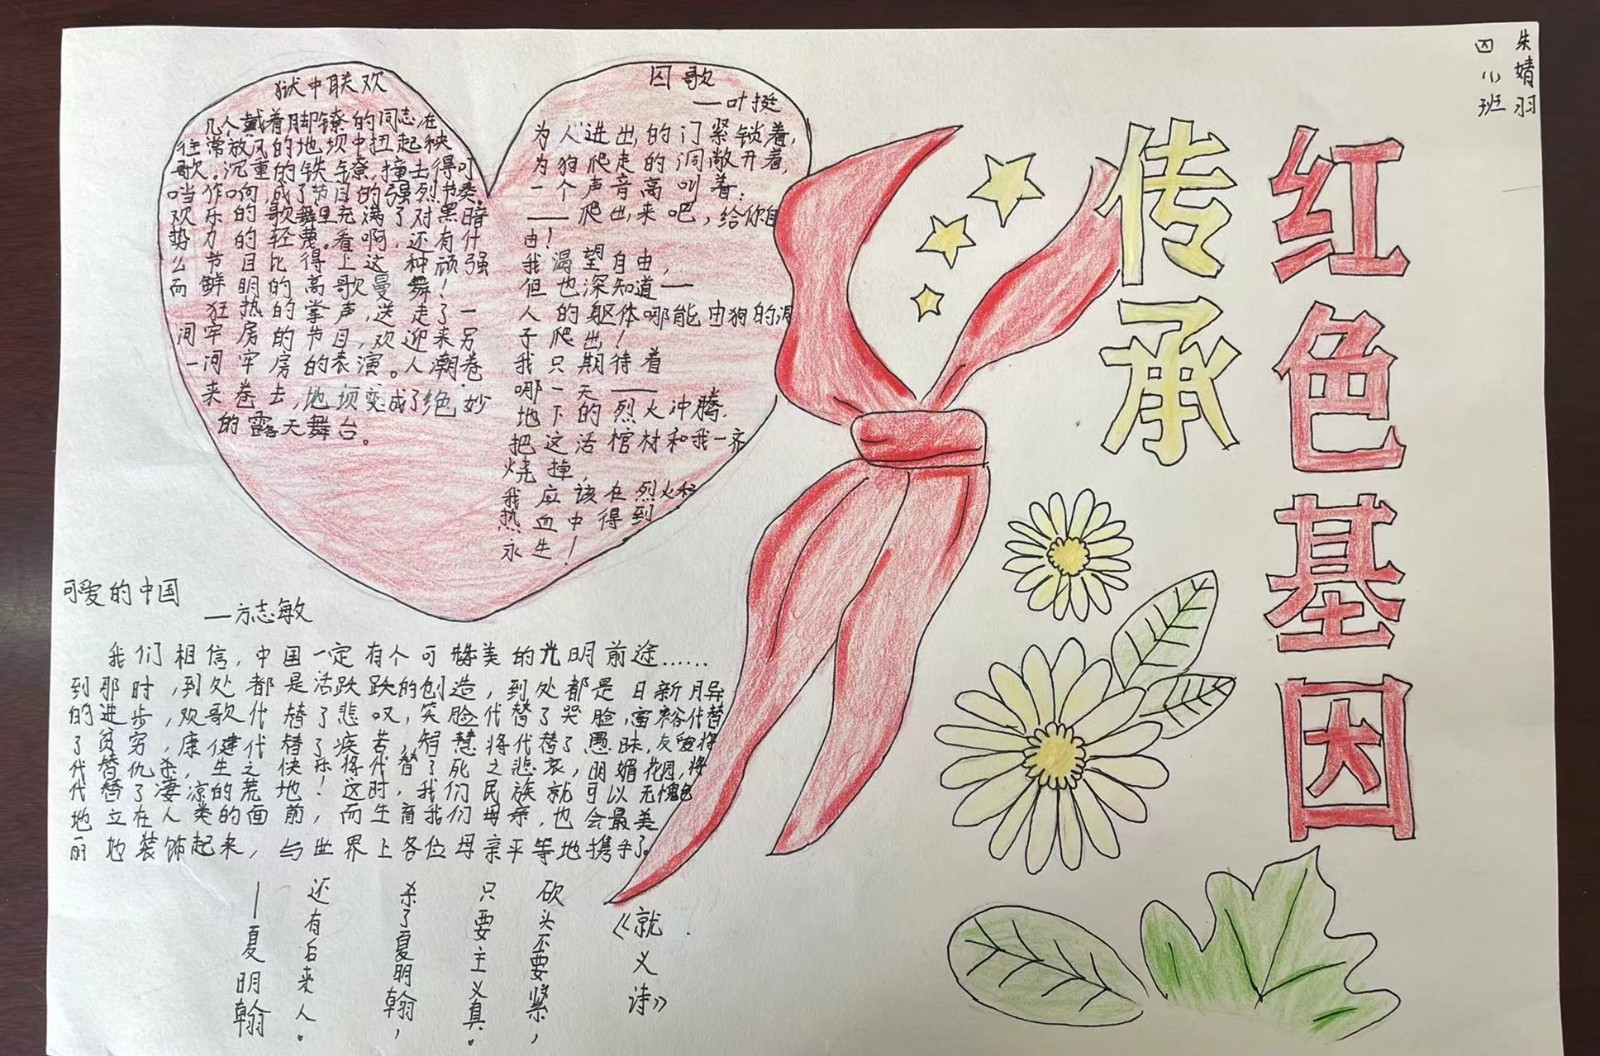 狱中联欢
几人戴着脚镣的同志在
往常放风的地坝中扭起秧
歌。沉重的铁镣,撞击得叮
当作响,成了节目的强烈节奏。
欢乐的歌舞里充满了对黑暗
势力的轻蔑。看啊,还有什
么节目比得上这种顽强
而鲜明的高歌曼舞!
狂热的掌声,送走了一
间牢房的节目,欢迎来另
一间牢房的表演。人潮卷
来卷去,地坝变成了绝妙
的露天舞台。
囚歌
——叶挺
为人进出的门紧锁着,
为狗爬走的洞敞开着,
一个声音高叫着:
——爬出来吧,给你自
由!
我渴望自由,
但也深知道——
人的躯体哪能由狗的洞
子爬出!
我只期待着
哪一天——
地下的烈火冲腾.
把这活棺材和我一齐
烧掉,
我应该在烈火和
热血中得到
永生!
可爱的中国
——方志敏
我们相信,中国一定有个可赞美的光明前途……
到那时,到处都是活跃跃的创造,到处都是日新月异
的进步,欢歌代替了悲叹,笑脸代替了哭脸,富裕代替
了贫穷,康健代替了疾苦,智慧将代替了愚昧,友爱将
代替仇杀,生之快乐将代替了死之悲哀,明媚花园,将
代替了凄凉的荒地!这时,我们民族就可以无愧色
地立在人类的面前,而生育我们母亲,也会最美
丽地装饰起来,与世界上各位母亲平等地携手了。
《就义诗》
砍头不要紧,
只要主义真。
杀了夏明翰,
还有后来人。
—夏明翰
红色基因
传承
朱婧羽
四小班